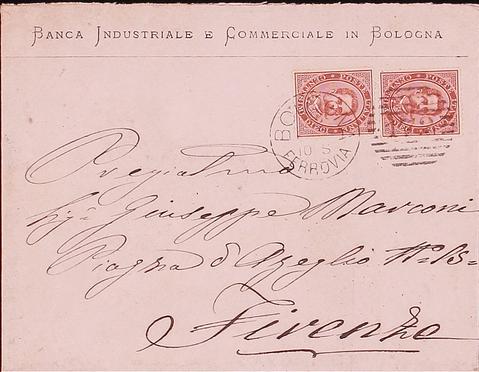 BANCA INDUSTRIALE E COMMERCIALE IN BOLOGNA
BO
10 S
FERROVIA
Pregiatmo
Sigr Giuseppe Marconi
Piazza d'Azeglio No 13
Firenze